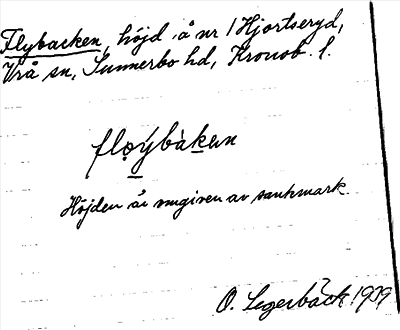 Flybacken, höjd å nr 1 Hjortseryd,
Vrå sn, Sunnerbo hd, Kronob. l.
fløy̖bàken
Höjden är omgiven av sankmark
O. Segerbäck 1939